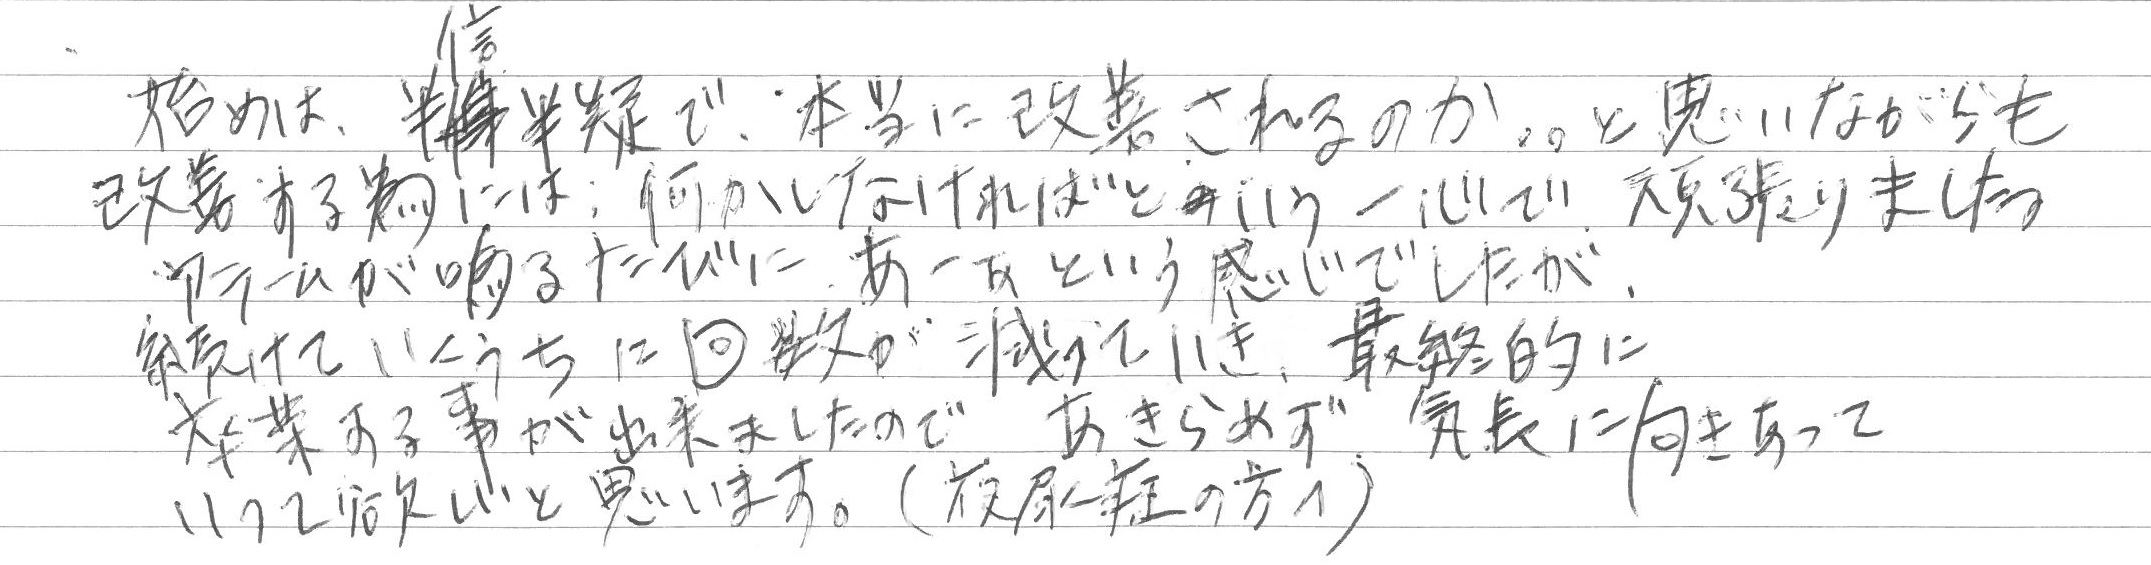 始めは、半信半疑で、本当に改善されるのか。。と思いながらも
改善する為には、何かしなければという一心で、頑張りました。
アラームが鳴るたびに、あーぁという感じでしたが、
続けていくうちに回数が減っていき、最終的に
卒業する事が出来ましたので あきらめず 気長に向きあって
いって欲しいと思います。(夜尿症の方へ)